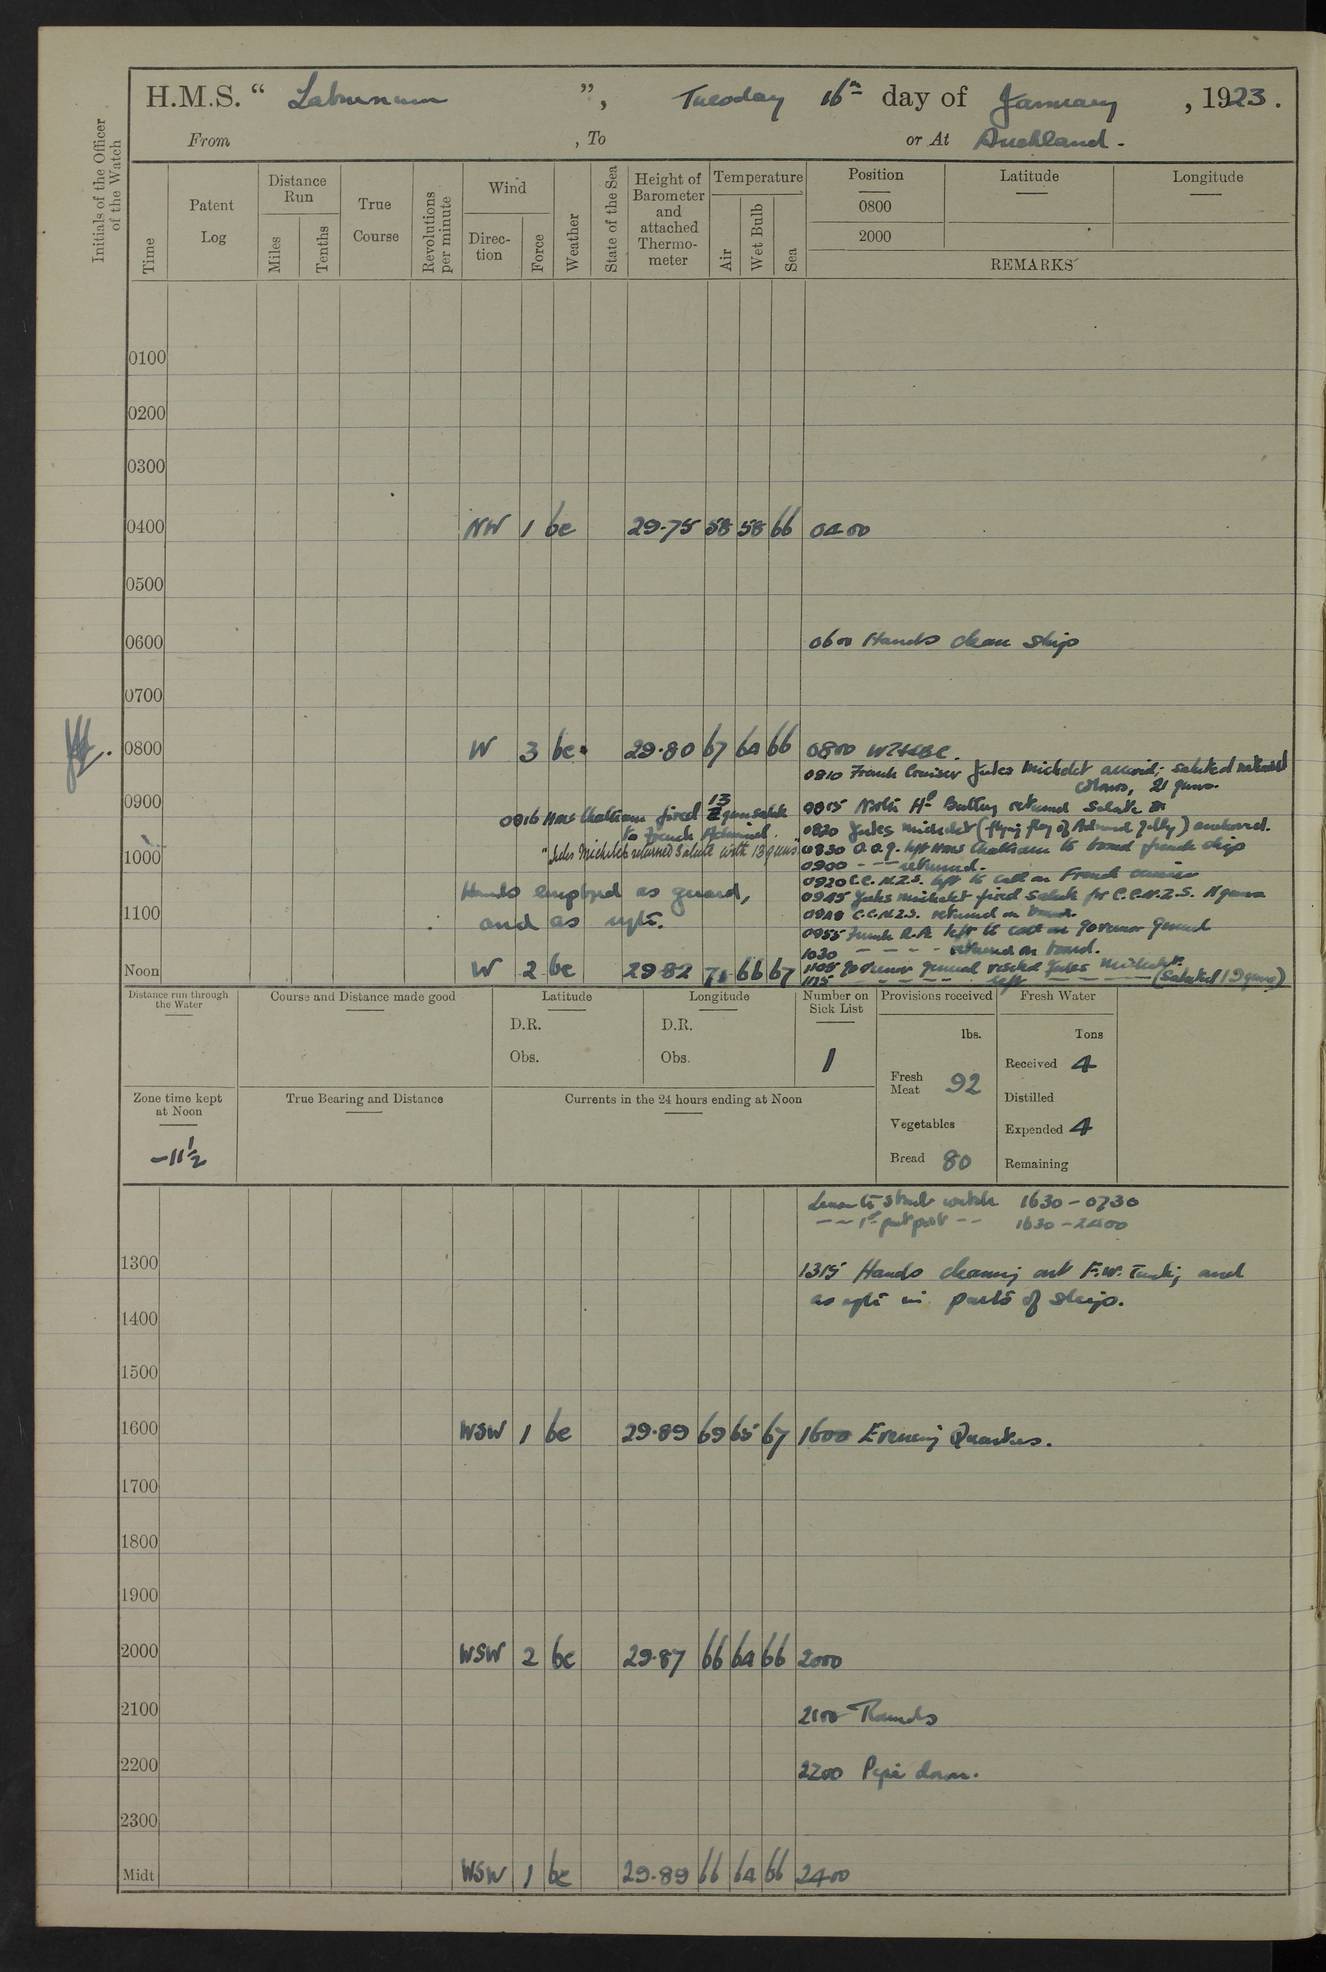 H.M.S. “ Laburnum ”, Tuesday 16th day of January, 1923.
From , To or At Auckland.
Initials of the Officer of the Watch
Time
Patent Log
Distance Run
Miles
Tenths
True Course
Revolutions per minute
Wind
Direc- tion
Force
Weather
State of the Sea
Height of Barometer and attached Thermo- meter
Temperature
Air
Wet Bulb
Sea
Position
0800
2000
Latitude
Longitude
REMARKS
0100
0200
0300
0400 NW 1 bc 29.75 58 58 66 0400
0500
0600 0600 Hands clean ship
0700
0800 W 3 bc. 29.80 67 64 66 0800
0810 French Cruiser Jules Michelet arrived; saluted national
colours, 21 guns.
0900
0815 North Hd Battery returned salute
0816 HMS Chatham fired 13 gun salute
to French Admiral.
0820 Jules Michelet (flying flag of Admiral Gilly) anchored.
" Jules Michelet returned salute with 13 guns
0830 O.O.G. left HMS Chatham to board french ship
1000
0900 - - returned.
0920 C.C.N.Z.S. left to call on French cruiser
Hands employed as guard,
and as reqte.
0945 Jules Michelet fired salute for C.C.N.Z.S. 11 guns
1100
0949 C.C.N.Z.S. returned on board.
0955 French R.A. left to call on Governor General
1030 - - - - returned on board.
Noon W 2 bc 29.82 71 66 67
1105 Governor General visited Jules Michelet.
1175 - - - - left - - - - (Saluted 19 guns)
Distance run through the Water
Course and Distance made good
Latitude
D.R.
Obs.
Longitude
D.R.
Obs.
Number on Sick List
1
Provisions received
lbs.
Fresh Meat 92
Vegetables
Bread 80
Fresh Water
Tons
Received 4
Distilled
Expended 4
Remaining
Zone time kept at Noon
-11½
True Bearing and Distance
Currents in the 24 hours ending at Noon
Leave to Starbd watch 1630 - 0730
- - 1st part port - - 1630 - 2400
1300
1315 Hands cleaning out F.W. Tank; and
as reqte in parts of ship.
1400
1500
1600 WSW 1 bc 29.89 69 65 67 1600 Evening Quarters.
1700
1800
1900
2000 WSW 2 bc 29.87 66 64 66 2000
2100 2100 Rounds
2200 2200 Pipe down.
2300
Midt WSW 1 bc 29.89 66 64 66 2400